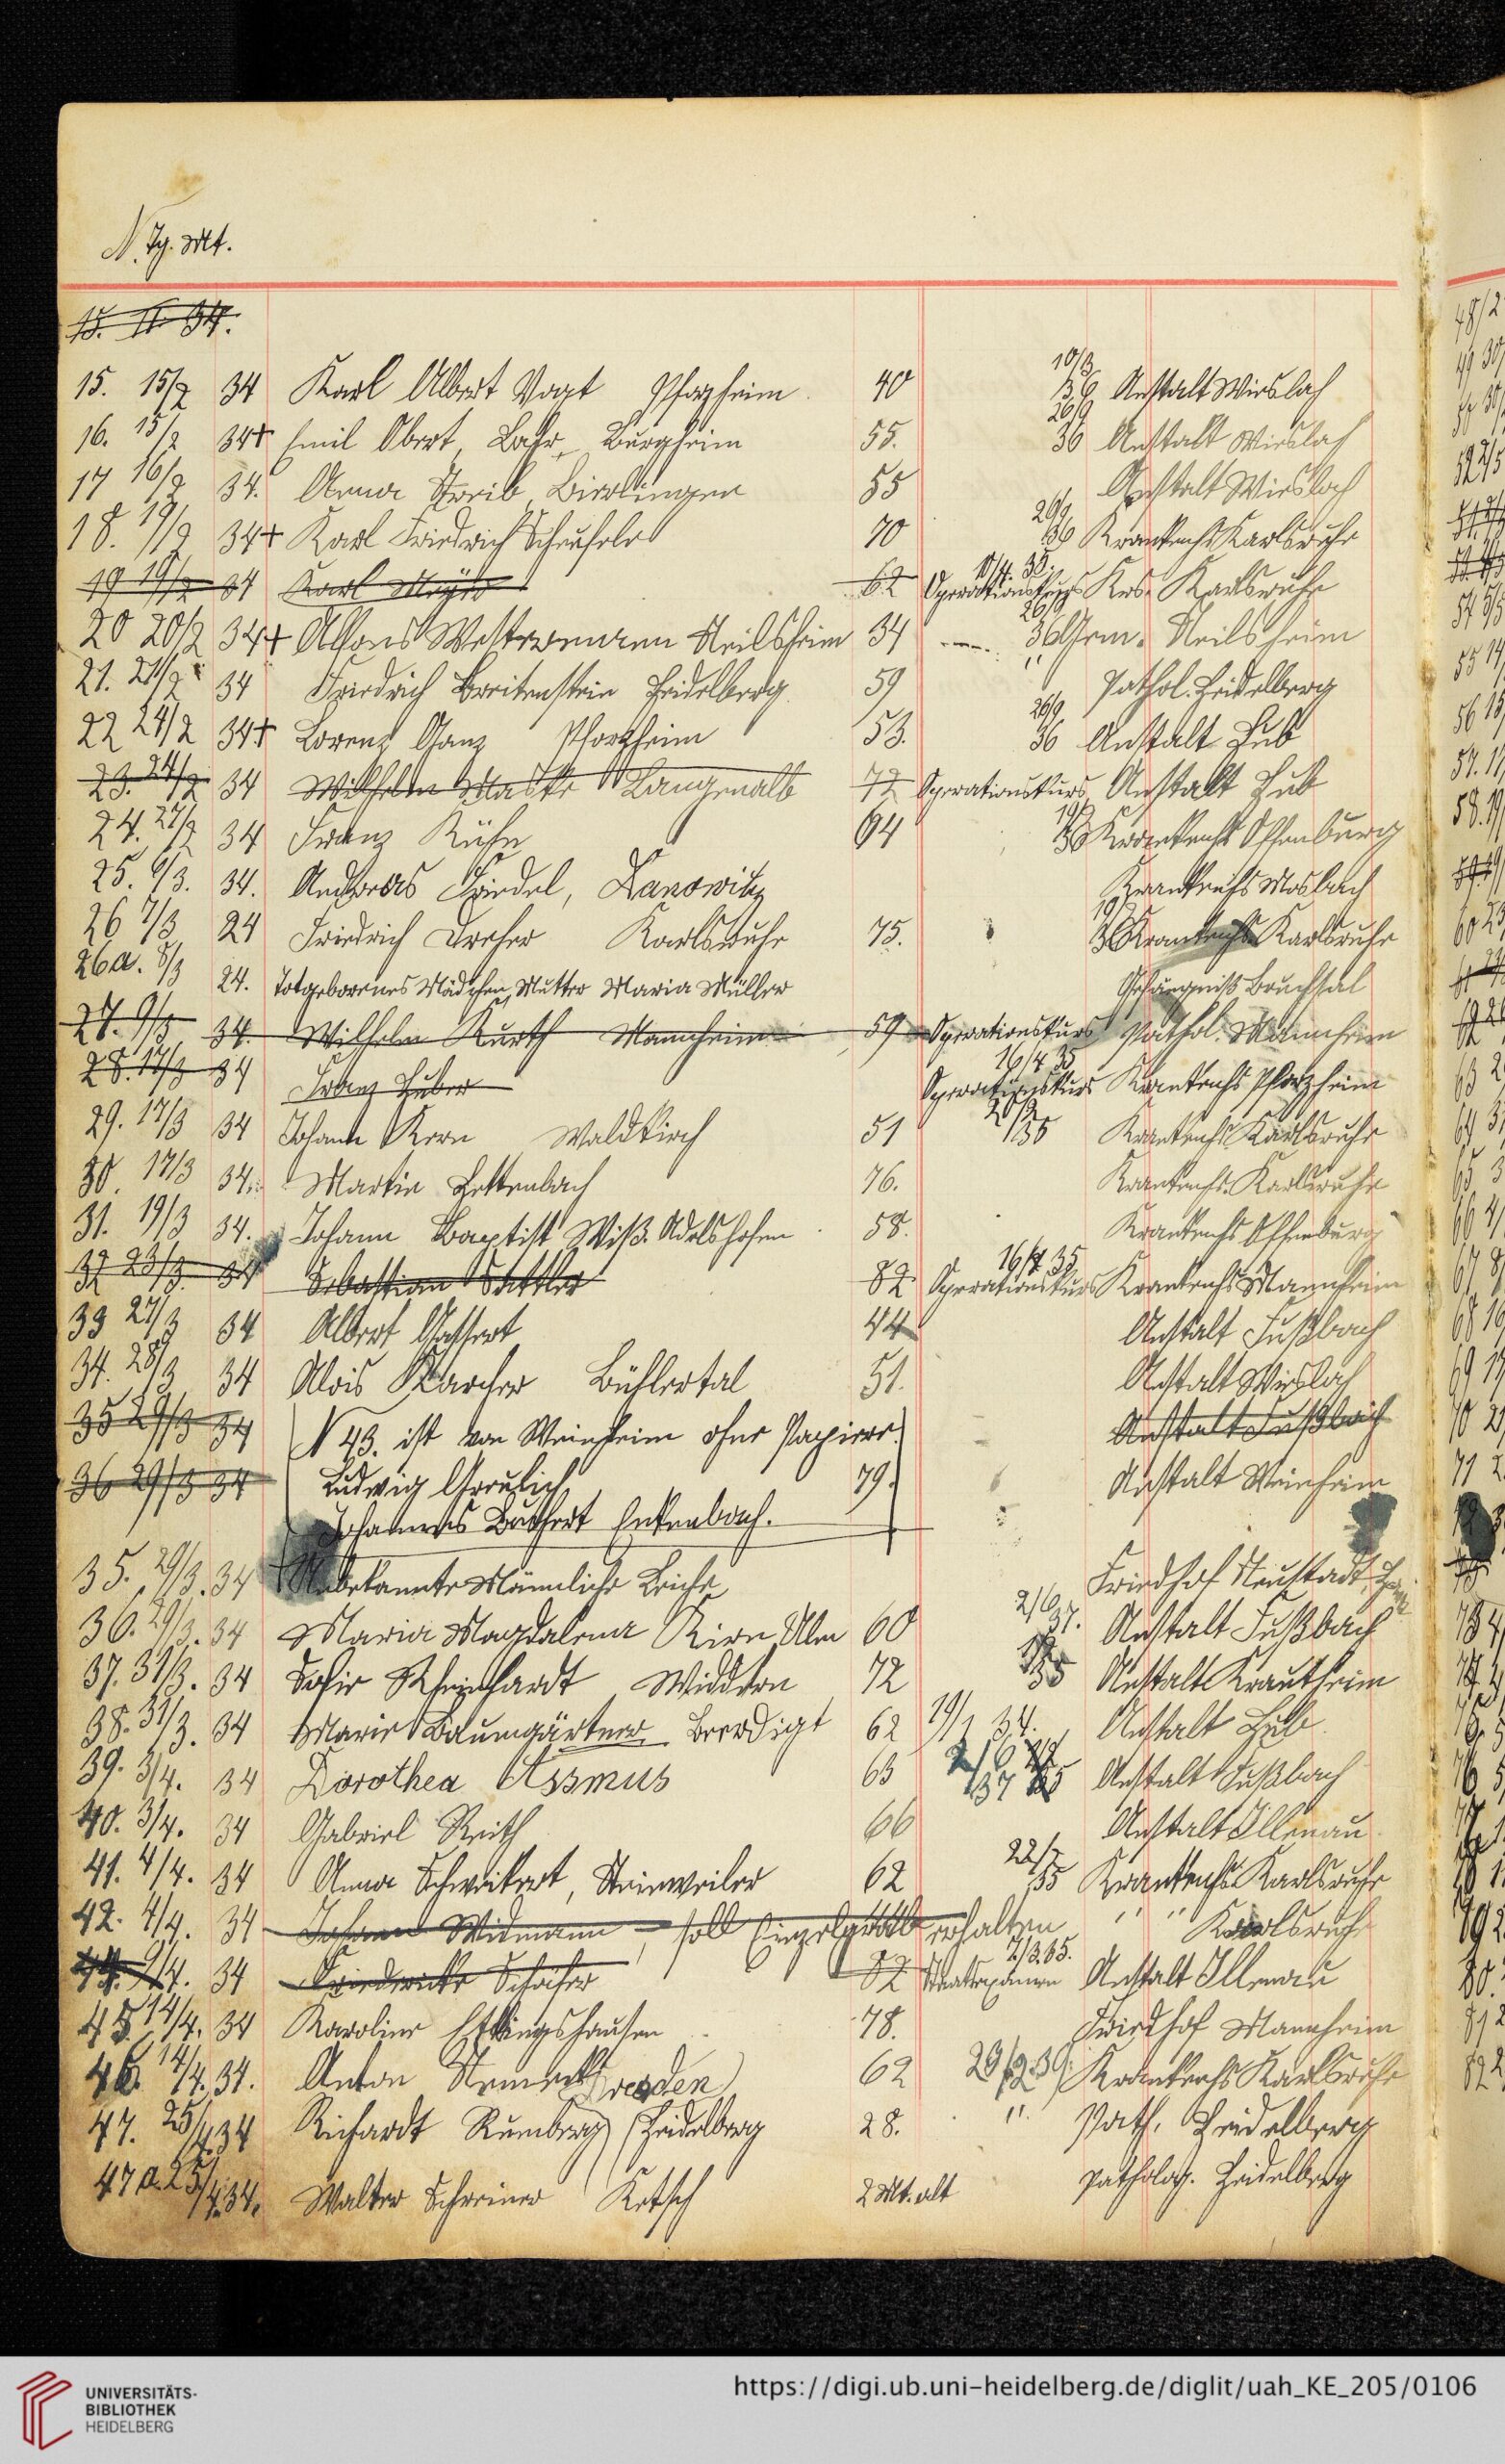 N. Tg. Mt.
15. II 34.
15. 15/2 34 Karl Albert Vogt Pforzheim 40 10/3 36 Anstalt Wiesloch
16. 15/2 34+ Emil Obert, Lahr, Burgheim 55. 26/9 36 Anstalt Wiesloch
17 16/2 34. Anna Streib, Bierlingen 55 Anstalt Wiesloch
18. 19/2 34+ Karl Friedrich Scheufele 70 26/9 36 Krankenhs Karlsruhe
19 19/2 34 Karl Mayer 62 Operationskurs 10/4. 35. Krs. Karlsruhe
20 20/2 34+ Alfons Westermann Neilsheim 34 26/9 36 Gem. Neilsheim
21. 21/2 34 Friedrich Breitenstein Heidelberg 59 " Pathol. Heidelberg
22 24/2 34+ Lorenz Ganz Pforzheim 53. 26/9 36 Anstalt Hub
23. 24/2 34 Wilhelm Maske Langenalb 72 Operationskurs Anstalt Hub
24. 27/2 34 Franz Kühn 64 19/3 36 Krankenhs Offenburg
25. 6/3. 34. Andreas Friedel, Krankenhs Mosbach
26 7/3 24 Friedrich Dreher Karlsruhe 75. 19/3 36 Krankenhs Karlsruhe
26a. 8/3 24. Totgeborenes Mädchen, Mutter Maria Müller Gefängniß Bruchsal
27. 9/3 34. Wilhelm Kurth Mannheim 59 Operationskurs Pathol. Mannheim
28. 17/3 34 Franz Huber Operationskurs 16/4 35 Krankenhs Pforzheim
29. 17/3 34 Johann Kern Waldkirch 51 2/2 35 Krankenhs Karlsruhe
30. 17/3 34. Martin Lettenbach 76. Krankenhs. Karlsruhe
31. 19/3 34. Johann Baptist Wiß. Adelshofen 58. Krankenhs Offenburg
32 23/3. 34 Sebastian Sattler 82 Operationskurs 16/4 35 Krankenhs Mannheim
33 27/3 34 Albert Gassert 44 Anstalt Fußbach
34. 28/3 34 Alois Karcher Bühlertal 51. Anstalt Wiesloch
35 29/3 34 N 43. ist von Weinheim ohne Papiere. Anstalt Fußbach
36 29/3 34 Ludwig Greulich 79. Anstalt Weinheim
Johannes Buchert Enkenbach.
35. 29/3. 34 Unbekannte Männliche Leiche Friedhof Neustadt,
36. 29/3. 34 Maria Magdalena Kirn Ulm 60 2/6 37. Anstalt Fußbach
37. 31/3. 34 Sofie Rheinhardt Widdern 72 35 Anstalt Krautheim
38. 31/3. 34 Marie Baumgärtner Beerdigt 62 19/1 34. Anstalt Hub
39. 3/4. 34 Dorothea Assmus 63 2/6 37 Anstalt Fußbach
40. 3/4. 34 Gabriel Reith 66 Anstalt Illenau
41. 4/4. 34 Anna Schweikert, Steinweiler 62 22/7 35 Krankenhs Karlsruhe
42. 4/4. 34 Johann Widmann, soll Einzelgrab erhalten " " Karlsruhe
44. 9/4. 34 Friedericke Schäfer 82 Staatsexamen 2/3 35. Anstalt Illenau
45. 14/4. 34 Karoline Ettingshausen 78. Friedhof Mannheim
46. 14/4. 34. Anton (Dresden) 62 23/2 39. Krankenhs Karlsruhe
47. 25/4. 34 Richardt Rumberg (Heidelberg 28. " Path. Heidelberg
47a. 25/4. 34. Walter Schreiner Ketsch 2 Mt. alt Patholog. Heidelberg
UNIVERSITÄTS-
BIBLIOTHEK
HEIDELBERG
https://digi.ub.uni-heidelberg.de/diglit/uah_KE_205/0106